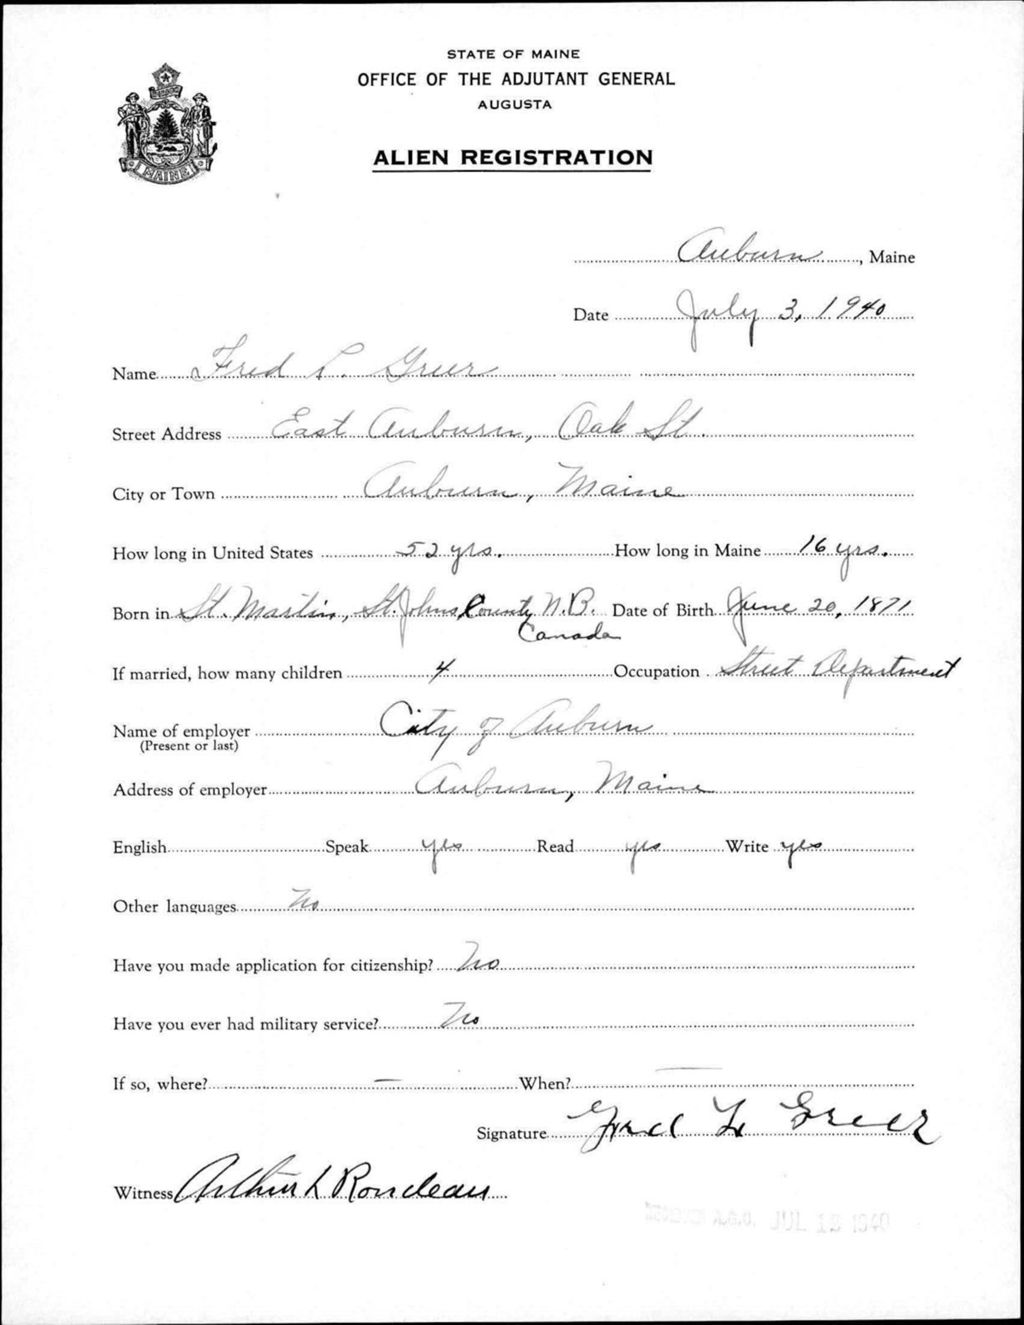 STATE OF MAINE
OFFICE OF THE ADJUTANT GENERAL
AUGUSTA
ALIEN REGISTRATION
MAINE
Auburn, Maine
Date July 3, 1940
Name Fred L. Greer
Street Address East Auburn, Oak St.
City or Town Auburn, Maine
How long in United States 52 yrs. How long in Maine 16 yrs.
Born in St. Martin, St. Johns County N.B. Date of Birth June 20, 1871
Canada
If married, how many children 4 Occupation Street Department
Name of employer City of Auburn
(Present or last)
Address of employer Auburn, Maine
English Speak yes Read yes Write yes
Other languages No
Have you made application for citizenship? No
Have you ever had military service? No
If so, where? — When? —
Signature Fred L Greer
Witness Arthur L Rondeau
A.G.O. JUL 1940